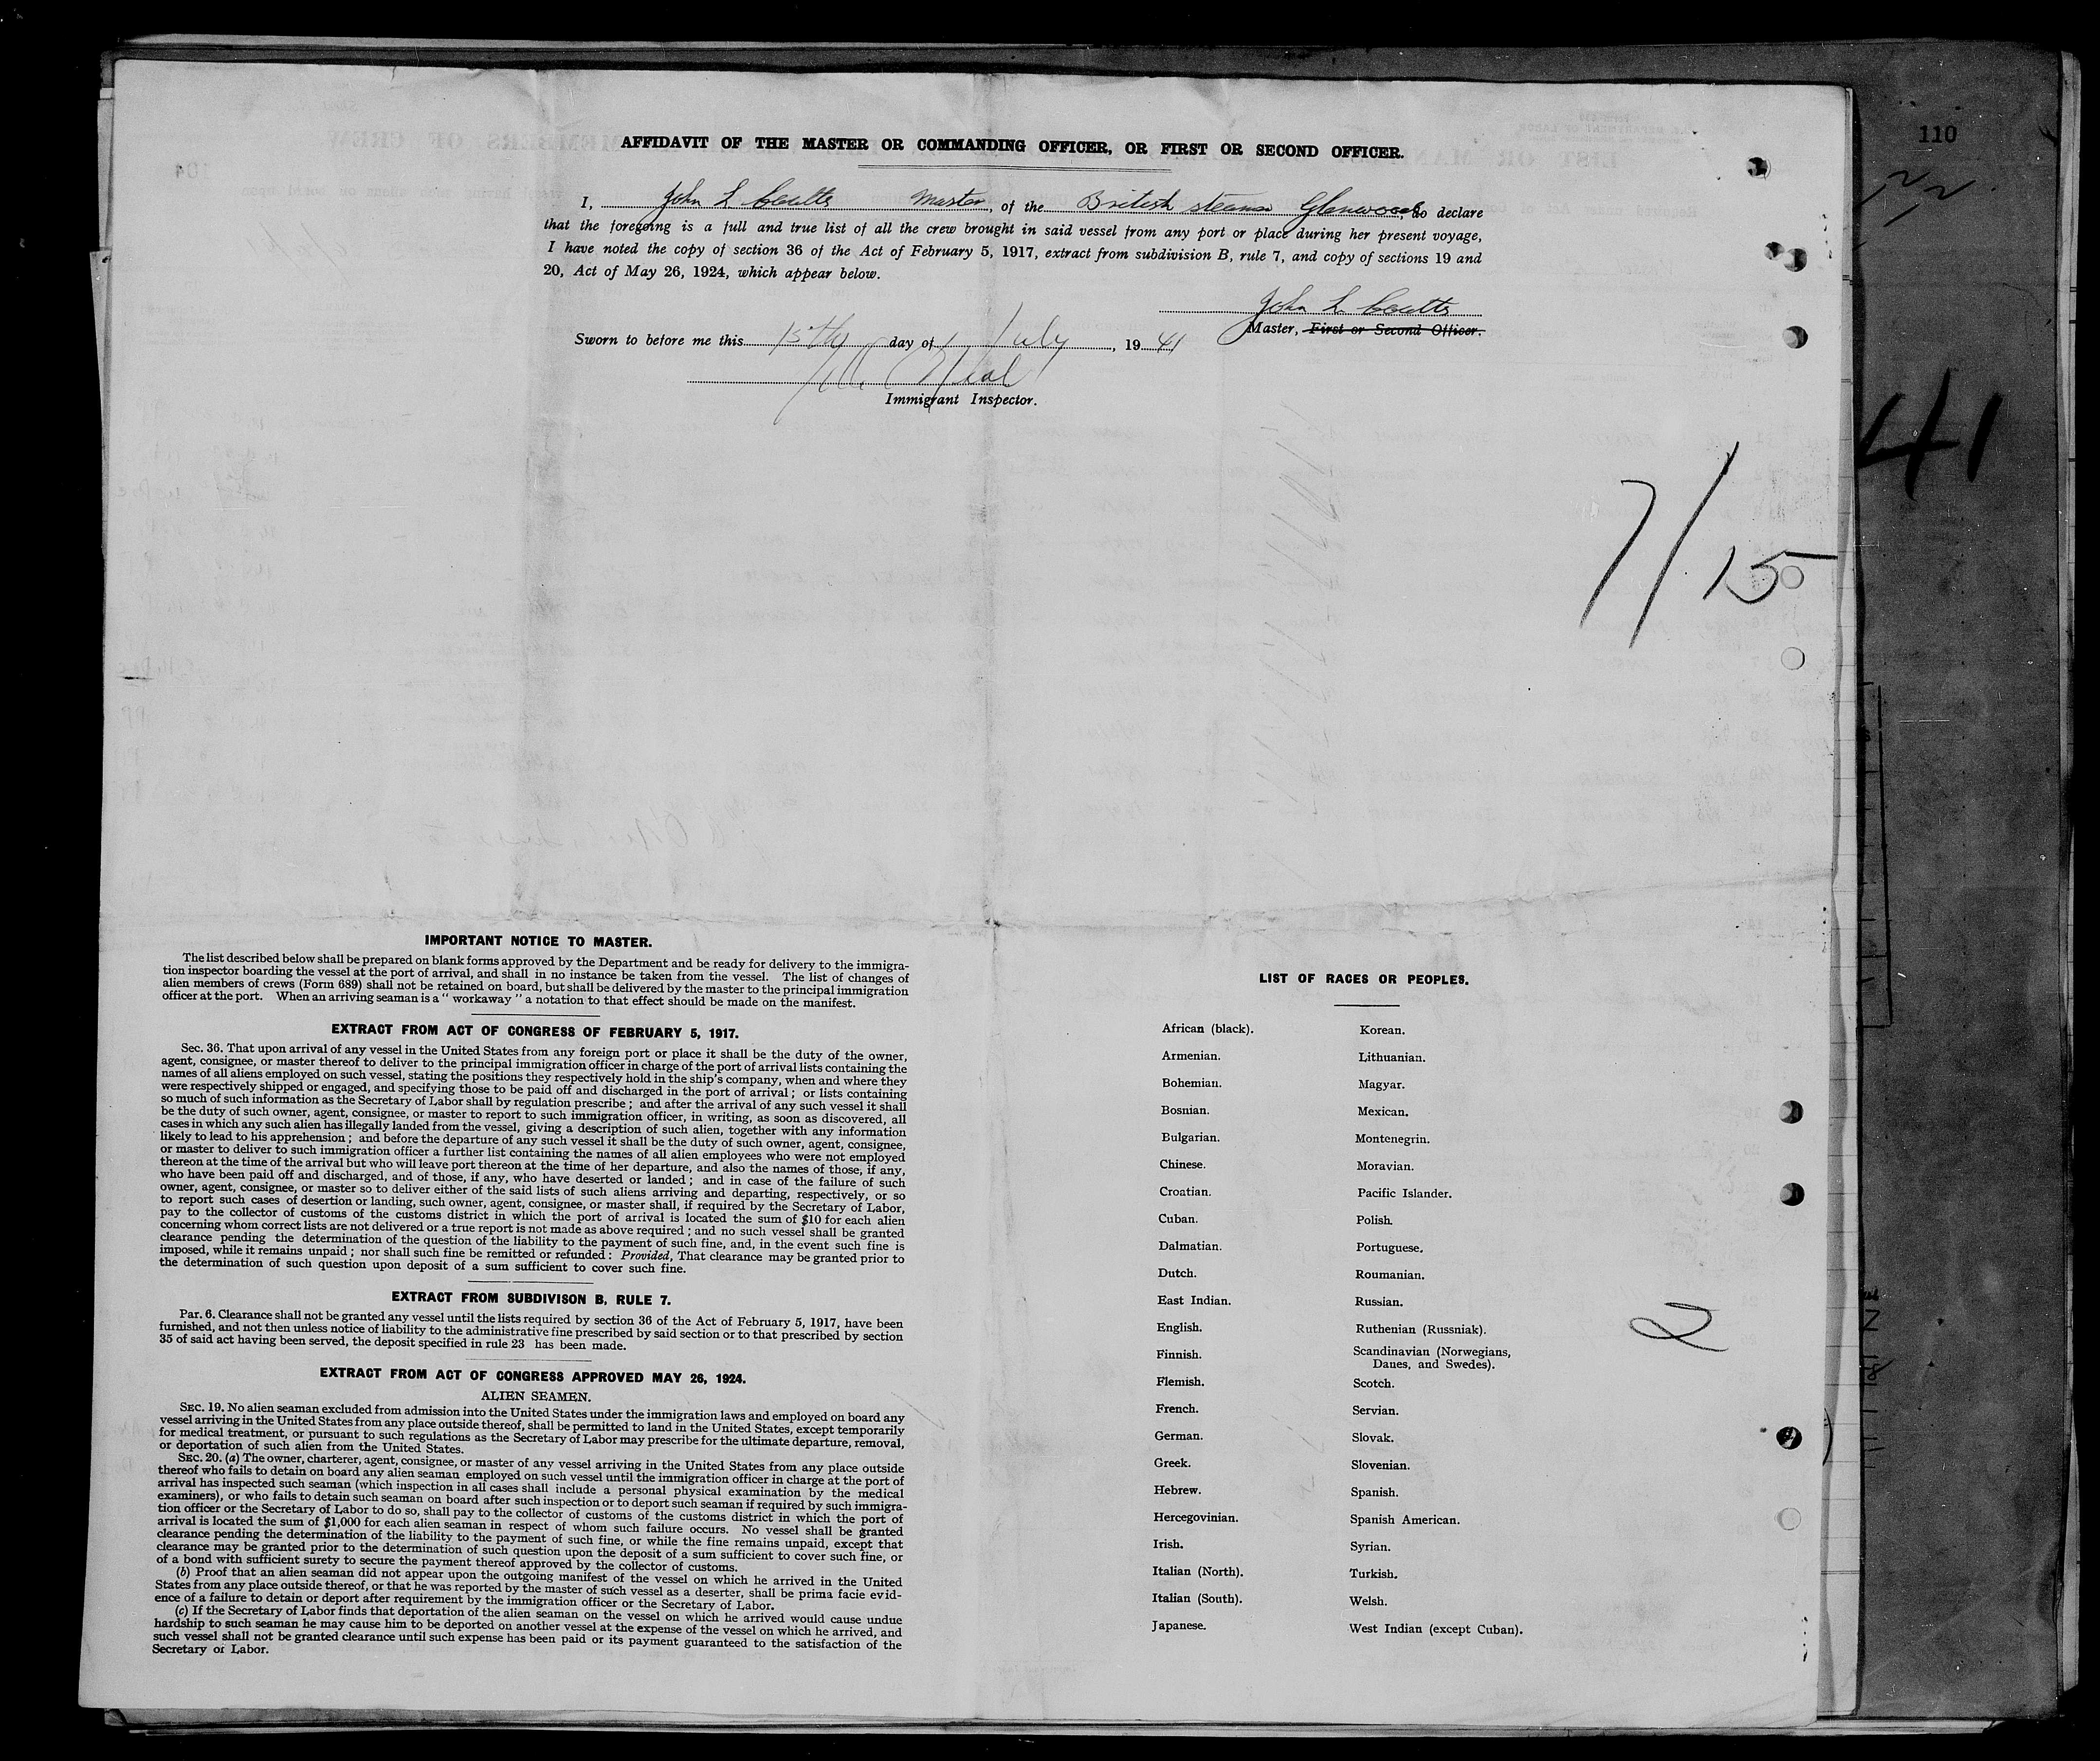 110
AFFIDAVIT OF THE MASTER OR COMMANDING OFFICER, OR FIRST OR SECOND OFFICER.
I, John L. Coutts Master, of the British steamer Glenwood, do declare
that the foregoing is a full and true list of all the crew brought in said vessel from any port or place during her present voyage,
I have noted the copy of section 36 of the Act of February 5, 1917, extract from subdivision B, rule 7, and copy of sections 19 and
20, Act of May 26, 1924, which appear below.
John L. Coutts
Master, First or Second Officer.
Sworn to before me this 15th day of July, 19 41
Immigrant Inspector.
41
7/15
IMPORTANT NOTICE TO MASTER.
The list described below shall be prepared on blank forms approved by the Department and be ready for delivery to the immigra-
tion inspector boarding the vessel at the port of arrival, and shall in no instance be taken from the vessel. The list of changes of
alien members of crews (Form 689) shall not be retained on board, but shall be delivered by the master to the principal immigration
officer at the port. When an arriving seaman is a "workaway" a notation to that effect should be made on the manifest.
EXTRACT FROM ACT OF CONGRESS OF FEBRUARY 5, 1917.
Sec. 36. That upon arrival of any vessel in the United States from any foreign port or place it shall be the duty of the owner,
agent, consignee, or master thereof to deliver to the principal immigration officer in charge of the port of arrival lists containing the
names of all aliens employed on such vessel, stating the positions they respectively hold in the ship's company, when and where they
were respectively shipped or engaged, and specifying those to be paid off and discharged in the port of arrival; or lists containing
so much of such information as the Secretary of Labor shall by regulation prescribe; and after the arrival of any such vessel it shall
be the duty of such owner, agent, consignee, or master to report to such immigration officer, in writing, as soon as discovered, all
cases in which any such alien has illegally landed from the vessel, giving a description of such alien, together with any information
likely to lead to his apprehension; and before the departure of any such vessel it shall be the duty of such owner, agent, consignee,
or master to deliver to such immigration officer a further list containing the names of all alien employees who were not employed
thereon at the time of the arrival but who will leave port thereon at the time of her departure, and also the names of those, if any,
who have been paid off and discharged, and of those, if any, who have deserted or landed; and in case of the failure of such
owner, agent, consignee, or master so to deliver either of the said lists of such aliens arriving and departing, respectively, or so
to report such cases of desertion or landing, such owner, agent, consignee, or master shall, if required by the Secretary of Labor,
pay to the collector of customs of the customs district in which the port of arrival is located the sum of $10 for each alien
concerning whom correct lists are not delivered or a true report is not made as above required; and no such vessel shall be granted
clearance pending the determination of the question of the liability to the payment of such fine, and, in the event such fine is
imposed, while it remains unpaid; nor shall such fine be remitted or refunded: Provided, That clearance may be granted prior to
the determination of such question upon deposit of a sum sufficient to cover such fine.
EXTRACT FROM SUBDIVISON B, RULE 7.
Par. 6. Clearance shall not be granted any vessel until the lists required by section 36 of the Act of February 5, 1917, have been
furnished, and not then unless notice of liability to the administrative fine prescribed by said section or to that prescribed by section
35 of said act having been served, the deposit specified in rule 23 has been made.
EXTRACT FROM ACT OF CONGRESS APPROVED MAY 26, 1924.
ALIEN SEAMEN.
SEC. 19. No alien seaman excluded from admission into the United States under the immigration laws and employed on board any
vessel arriving in the United States from any place outside thereof, shall be permitted to land in the United States, except temporarily
for medical treatment, or pursuant to such regulations as the Secretary of Labor may prescribe for the ultimate departure, removal,
or deportation of such alien from the United States.
SEC. 20. (a) The owner, charterer, agent, consignee, or master of any vessel arriving in the United States from any place outside
thereof who fails to detain on board any alien seaman employed on such vessel until the immigration officer in charge at the port of
arrival has inspected such seaman (which inspection in all cases shall include a personal physical examination by the medical
examiners), or who fails to detain such seaman on board after such inspection or to deport such seaman if required by such immigra-
tion officer or the Secretary of Labor to do so, shall pay to the collector of customs of the customs district in which the port of
arrival is located the sum of $1,000 for each alien seaman in respect of whom such failure occurs. No vessel shall be granted
clearance pending the determination of the liability to the payment of such fine, or while the fine remains unpaid, except that
clearance may be granted prior to the determination of such question upon the deposit of a sum sufficient to cover such fine, or
of a bond with sufficient surety to secure the payment thereof approved by the collector of customs.
(b) Proof that an alien seaman did not appear upon the outgoing manifest of the vessel on which he arrived in the United
States from any place outside thereof, or that he was reported by the master of such vessel as a deserter, shall be prima facie evid-
ence of a failure to detain or deport after requirement by the immigration officer or the Secretary of Labor.
(c) If the Secretary of Labor finds that deportation of the alien seaman on the vessel on which he arrived would cause undue
hardship to such seaman he may cause him to be deported on another vessel at the expense of the vessel on which he arrived, and
such vessel shall not be granted clearance until such expense has been paid or its payment guaranteed to the satisfaction of the
Secretary of Labor.
LIST OF RACES OR PEOPLES.
African (black).
Armenian.
Bohemian.
Bosnian.
Bulgarian.
Chinese.
Croatian.
Cuban.
Dalmatian.
Dutch.
East Indian.
English.
Finnish.
Flemish.
French.
German.
Greek.
Hebrew.
Hercegovinian.
Irish.
Italian (North).
Italian (South).
Japanese.
Korean.
Lithuanian.
Magyar.
Mexican.
Montenegrin.
Moravian.
Pacific Islander.
Polish.
Portuguese.
Roumanian.
Russian.
Ruthenian (Russniak).
Scandinavian (Norwegians,
Danes, and Swedes).
Scotch.
Servian.
Slovak.
Slovenian.
Spanish.
Spanish American.
Syrian.
Turkish.
Welsh.
West Indian (except Cuban).
2